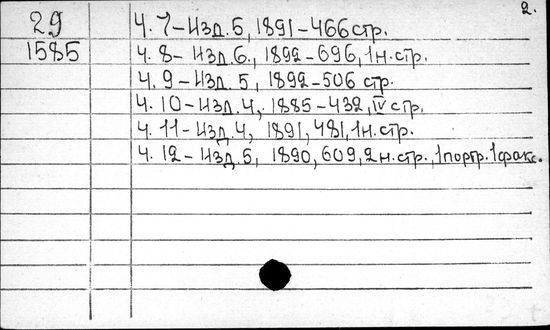 2.
29 Ч. 7-Изд. 5, 1891-466 стр.
1585 Ч. 8- Изд. 6., 1892-696, 1н. стр.
Ч. 9-Изд. 5, 1892-506 стр.
Ч. 10-Изд. 4, 1885-432, IV стр.
Ч. 11-Изд. 4, 1891, 481, 1н. стр.
Ч. 12-Изд. 5, 1890, 609, 2н. стр., 1портр. 1факс.